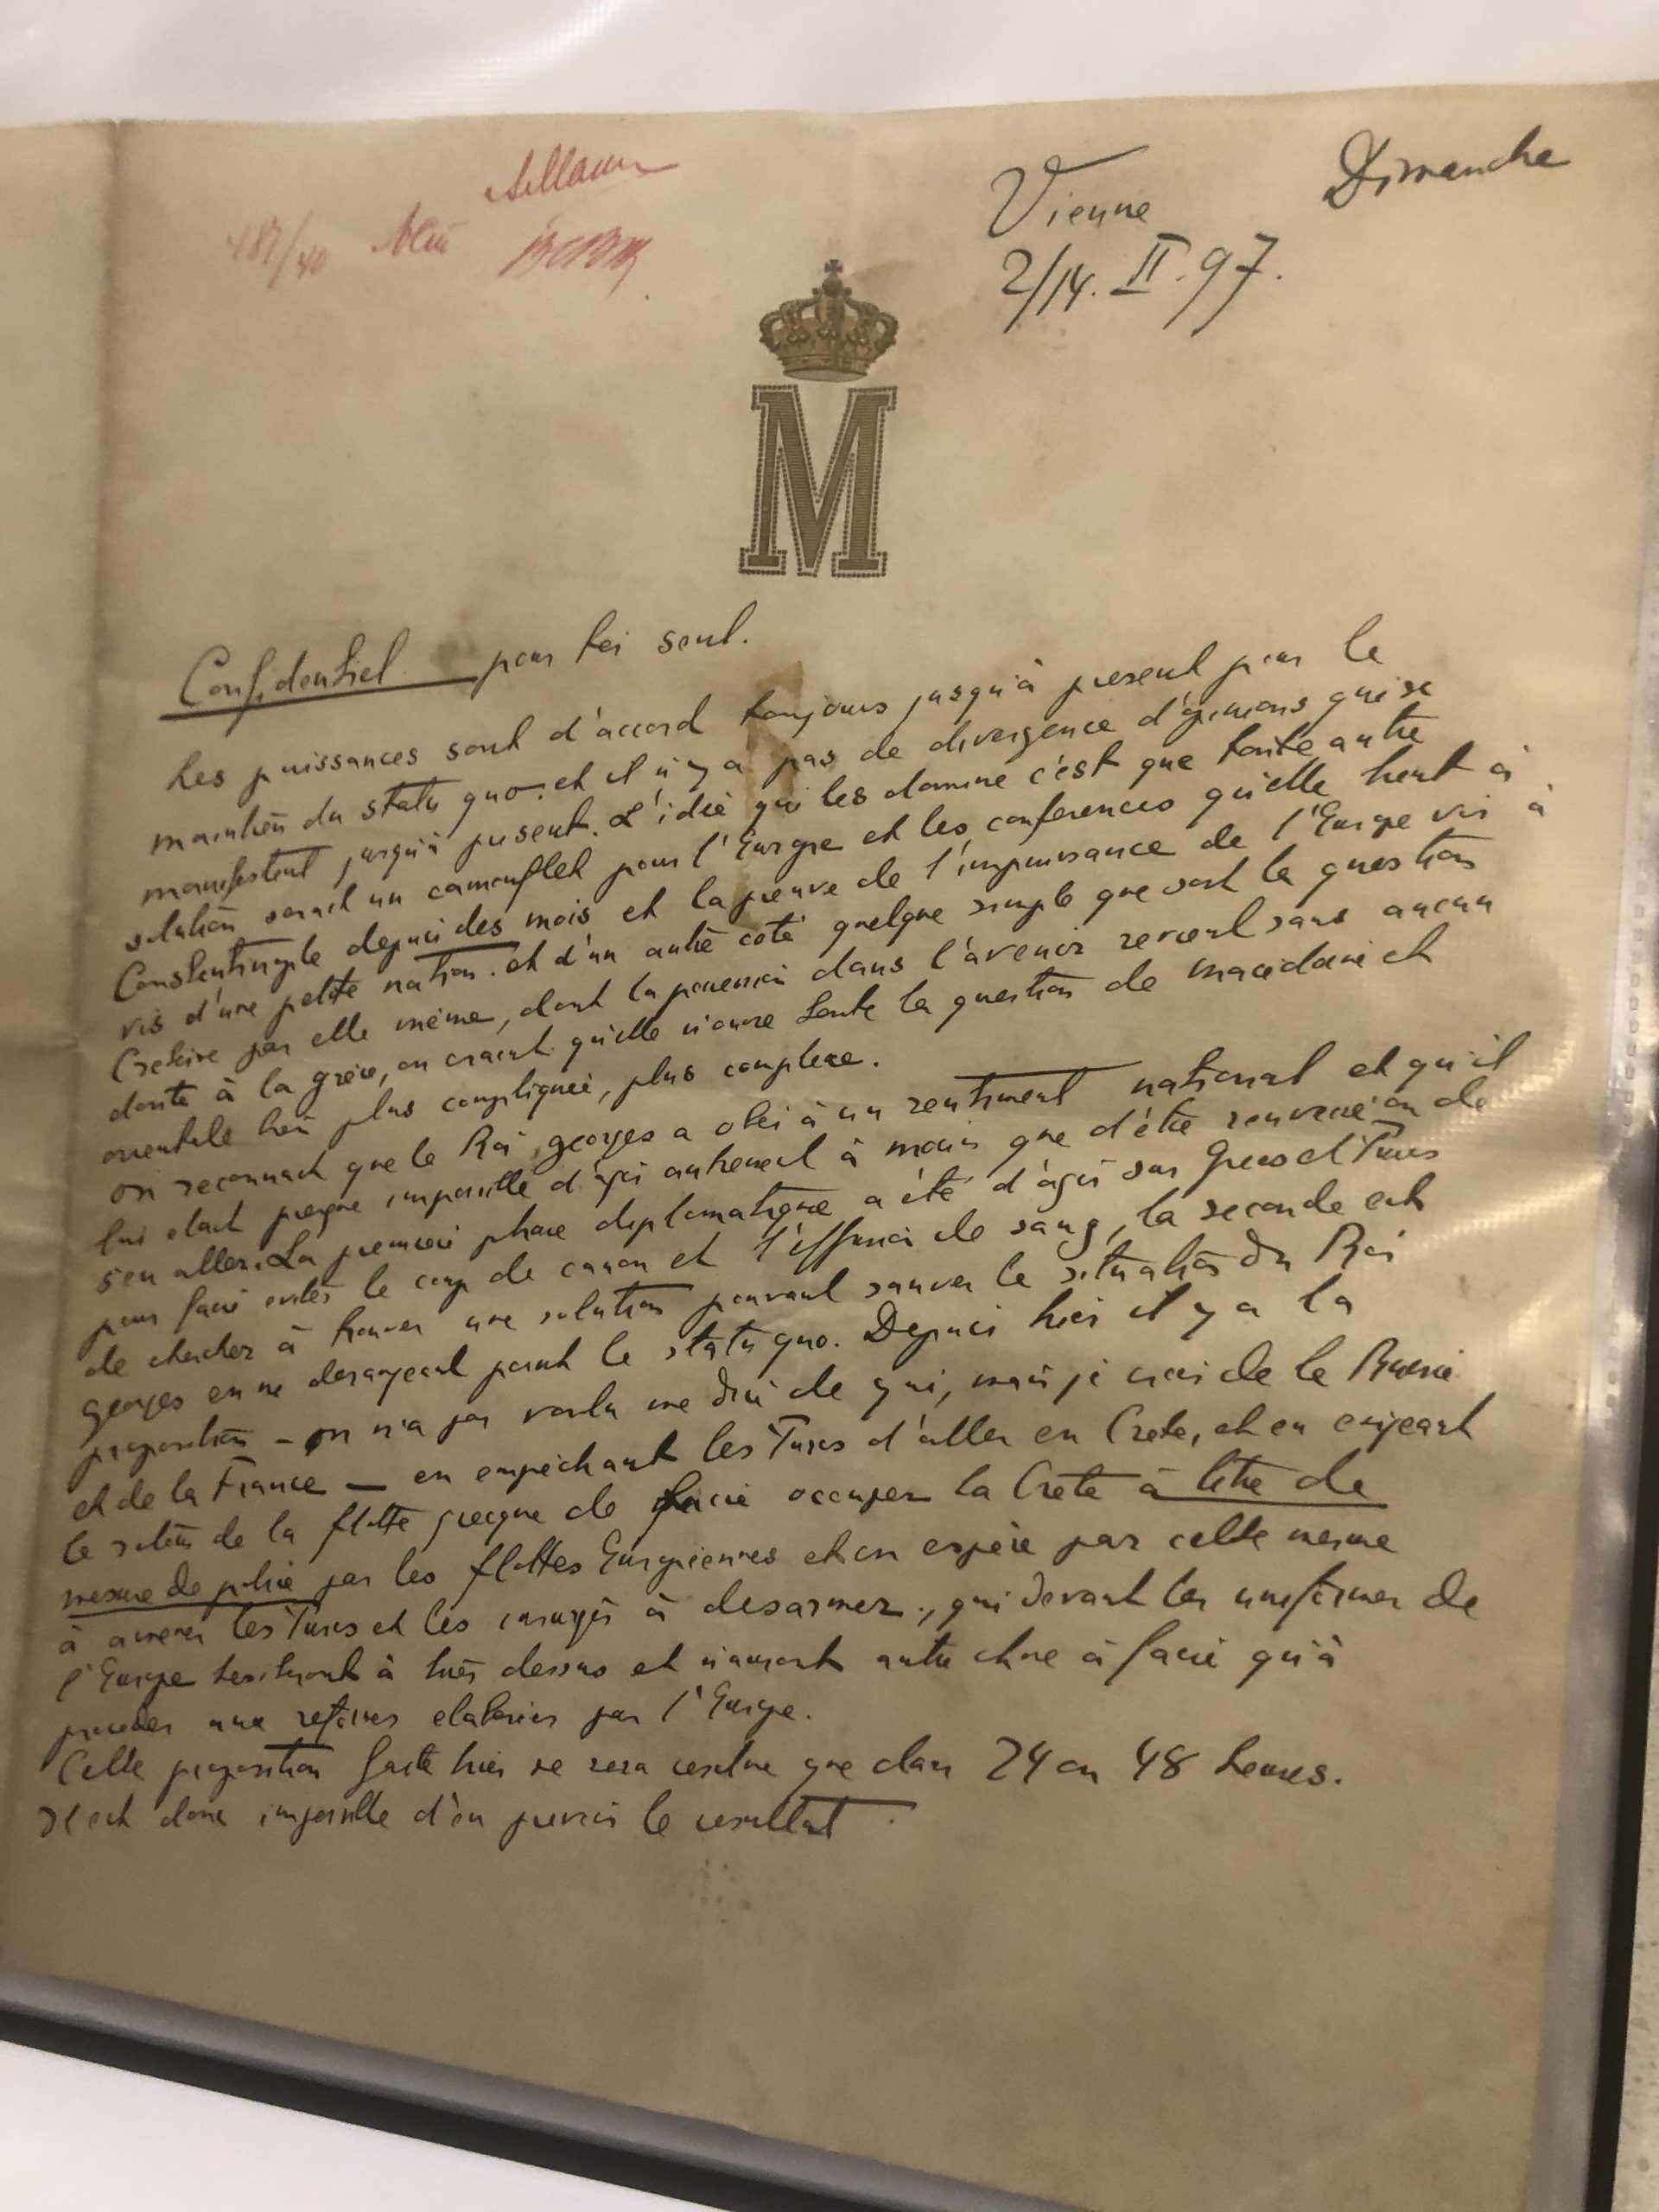 Dimanche
Vienne
2/14. II. 97.
M
Confidentiel pour toi seul.
Les puissances sont d'accord toujours jusqu'à present pour le
maintien du statu quo. et il n'y a pas de divergence d'opinions qui se
manifestent jusqu'à present. L'idée qui les domine c'est que toute autre
solution serait un camouflet pour l'Europe et les conferences qu'elle tient à
Constantinople depuis des mois et la preuve de l'impuissance de l'Europe vis à
vis d'une petite nation. et d'un autre coté quelque simple que soit la question
Cretoise par elle même, dont la possession dans l'avenir revient sans aucun
doute à la Grèce, on craint qu'elle n'ouvre toute la question de Macedoine et
orientale bien plus compliquée, plus complexe.
On reconnait que le Roi Georges a obei à un sentiment national et qu'il
lui etait presque impossible d'agir autrement à moins que d'être renversé ou de
s'en aller. La premiere phase diplomatique a été d'agir sur Grecs et Turcs
pour faire eviter le coup de canon et l'effusion de sang, la seconde est
de chercher à trouver une solution pouvant sauver la situation du Roi
Georges en ne derangeant point le statu quo. Depuis hier il y a la
proposition – on n'a pas voulu me dire de qui, mais je crois de la Russie
et de la France — en empêchant les Turcs d'aller en Crete, et en exigeant
le retour de la flotte grecque de faire occuper la Crète à titre de
mesure de police par les flottes Européennes et on espère par cette mesure
à amener les Turcs et les insurgés à desarmer, qui devant les uniformes de
l'Europe hesiteront à tirer dessus et n'auront autre chose à faire qu'à
proceder aux reformes elaborées par l'Europe.
Cette proposition faite hier ne sera resolue que dans 24 ou 48 heures.
Il est donc impossible d'en prevoir le resultat.